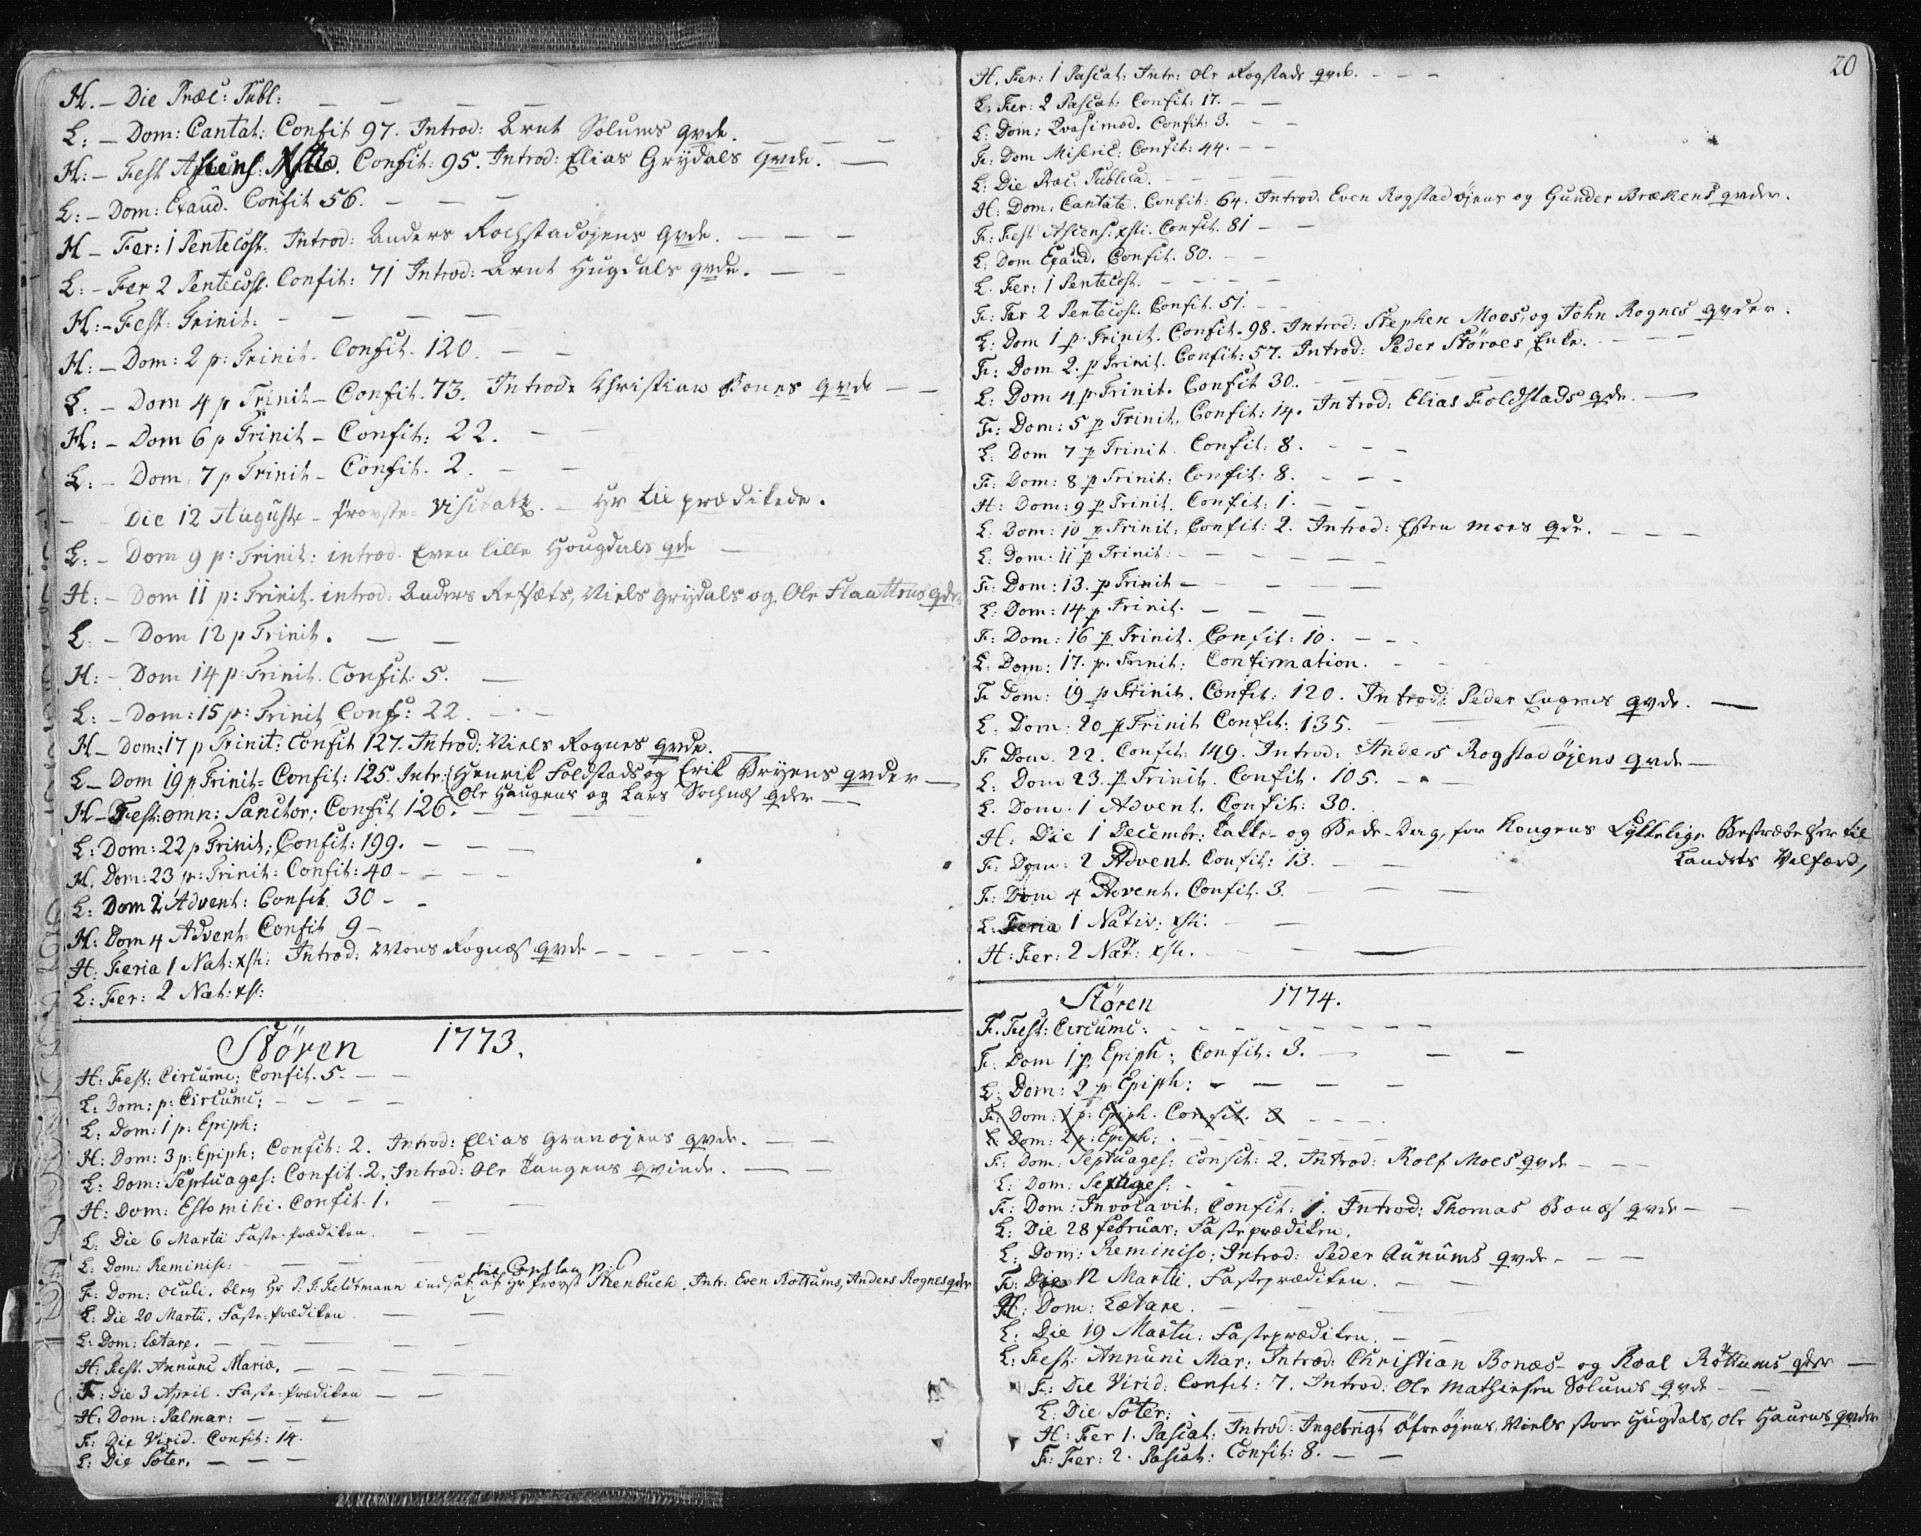 H. - Die Præc: Publ: - - - -
L: - Dom: Cantat: Confit 97. Introd: Arnt Solums qvde. - - -
H: - Fest Ascens: Xsti. Confit: 95. Introd: Elias Grydals qvde. -
L: - Dom: Exaud. Confit 56. - - -
H - Fer: 1 Pentecost. Introd: Anders Rochstadøjens qvde. - - -
L: - Fer 2 Pentecost. Confit: 71 Introd: Arnt Hugdals qvde. - -
H: - Fest: Trinit: - - - -
H: - Dom: 2 p: Trinit. Confit. 120. - -
L: - Dom 4 p Trinit - Confit. 73. Introd: Christian Bones qvde - -
H: - Dom 6 p Trinit - Confit: 22. - -
L: - Dom: 7 p Trinit - Confit. 2. - -
- - Die 12 Auguste - Provste- Visitatz. - Hr Lie prædikede.
L: - Dom 9 p: Trinit: introd. Even lille Hougdals qde -
H: - Dom 11 p: Trinit. introd: Anders Refsæts, Niels Grydals og Ole Flaattens qder
L: - Dom 12 p Trinit. - -
H: - Dom 14 p: Trinit. Confit: 5. -
L: - Dom: 15 p: Trinit Conf: 22. - -
H - Dom: 17 p Trinit: Confit 127. Introd: Niels Rognes qvde.
L - Dom 19 p Trinit - Confit: 125. Intr: Henrik Foldstads og Erik Bryens qvder -
Ole Haugens og Lars Sochnæs qder -
H - Fest: omn: Sanctor: Confit 126. - - -
L: Dom: 22 p Trinit; Confit: 199. - - -
H. Dom: 23 p: Trinit: Confit: 40 - - - -
L: Dom 2 Advent: Confit 30 - -
H: Dom 4 Advent: Confit 9 -
H: Feria 1 Nat: Xsti: Introd: Mons Rognæs qvde - - - - - -
L: Fer: 2 Nat: Xst:
Støren 1773.
H: Fest: Circumc: Confit. 5. - -
L: Dom: p: Circumc: - - - -
L: Dom: 1 p: Epiph:
H: Dom: 3 p: Epiph: Confit: 2. Introd: Elias Granøjens qvde. - -
L: Dom: Septuages: Confit. 2. Introd: Ole Tangens qvinde. - -
H: Dom: Estomihi. Confit. 1. - -
L: Die 6 Martii Faste-prædiken. - -
L: Dom: Reminisc: - - - -
F: Dom: Oculi. blev Hr P. J. Feldtmann indsat af Hr Provst Stenbuch. Intr: Even Rottums, Anders Rognes qder
L: Die 20 Martii. Faste-prædiken - - -
L: Dom: Lætare. - - - - -
H: Fest: Annunc Mariæ. - - - -
F: Die 3 April. Faste-prædiken - -
H: Dom: Palmar: - - -
F: Die Virid. Confit: 14.
L: Die Soter. - - -
20
H. Fer: 1 Pascat: Intr: Ole Rogstads qvde. - - -
L: Fer: 2 Pascat: Confit: 17. - -
L: Dom: Qvasimod. Confit: 3. - -
F: Dom Miseric: Confit: 44. - -
L: Die Præc: Publica. - - - -
H: Dom: Cantate. Confit: 64. Introd. Even Rogstadøjens og Gunder Brækens qvder.
F: Fest Ascens: Xsti. Confit. 81 - -
L: Dom Exaud. Confit. 80. - -
L. Fer: 1 Pentecost. - - - -
F: Fer 2 Pentecost. Confit. 51. - -
L: Dom 1 p. Trinit. Confit. 98. Introd: Stephen Moes, og John Rognes qvder.
F: Dom 2. p Trinit. Confit: 57. Introd: Peder Størens Enke. - - -
L: Dom 4 p Trinit. Confit 30. - - - -
F: Dom: 5 p Trinit. Confit: 14. Introd: Elias Foldstads qde. -
L: Dom 7 p Trinit. Confit: 8. - - -
F: Dom: 8 p Trinit: Confit: 8. - - -
H: Dom: 9 p Trinit. Confit: 1. - -
L: Dom: 10 p Trinit: Confit: 2. Introd: Esten Moes qde. - - -
L: Dom: 11 p Trinit: - - - - -
F: Dom: 13. p Trinit - - - - -
L: Dom: 14 p Trinit. - - -
F: Dom: 16 p Trinit. Confit: 10. - - -
L: Dom: 17. p. Trinit: Confirmation. - -
F Dom: 19 p Trinit. Confit: 120. Introd: Peder Engens qvde. -
L. Dom: 20 p Trinit Confit: 135. - - -
F. Dom: 22. Confit: 149. Introd: Anders Rogstadøjens qvde -
L: Dom 23. p Trinit. Confit. 105. - -
L: Dom: 1 Advent. Confit: 30.
H: Die 1 Decembr: Takke- og Bede-Dag, for Kongens Lykkelige Bestræbelser til
Landets Velfærd,
F: Dom: 2 Advent Confit: 13. - -
F: Dom 4 Advent. Confit. 3. - - - -
L. Feria 1 Nativ: Xsti: - -
H: Fer: 2 Nat: Xsti. - - -
Støren 1774.
F. Fest: Circumc: - - - - - - - -
F: Dom 1 p. Epiph: Confit: 3. - - -
L: Dom: 2 p Epiph: - - - -
F: Dom: 1 p: Epiph. Confit. 3 - - - -
L: Dom: 2 p: Epiph: - - - - - -
F: Dom: Septuages: Confit: 2. Introd: Rolf Moes qvde - - -
L: Dom: Sexages: - - -
F: Dom: Invocavit: Confit: 1. Introd: Thomas Bonæs qvde - -
L: Die 28 Februar: Fasteprædiken.
L: Dom: Reminisc: Introd: Peder Aunums qvde - - -
F: Die 12 Martii. Fasteprædiken. - -
H: Dom: Lætare. - - - -
L: Die 19 Martii: Fasteprædiken. - -
L: Fest: Annunc Mar: Introd: Christian Bonæs - og Roal Røttums qder -
F: Die Virid: Confit: 7. Introd: Ole Mathiesen Solums qvde - -
L: Die Soter: - - - - -
H: Fer 1. Pascat: Introd: Ingebrigt Øfreøjens, Niels store Hugdals, Ole Haukens qvder
F: Fer: 2. Pascat: Confit: 8. - -